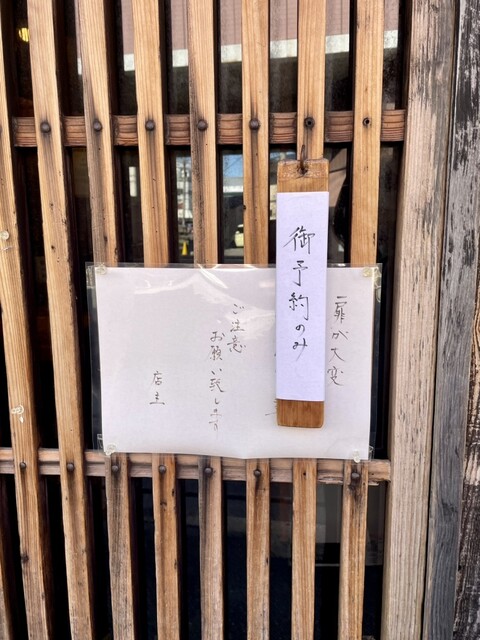 御予約のみ
扉が大変
ご注意
お願い致します
店主